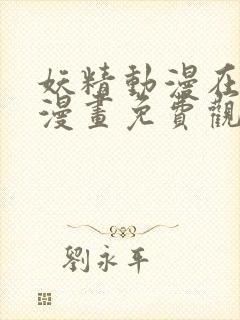 妖精動漫在
漫畫免費觀
劉永平